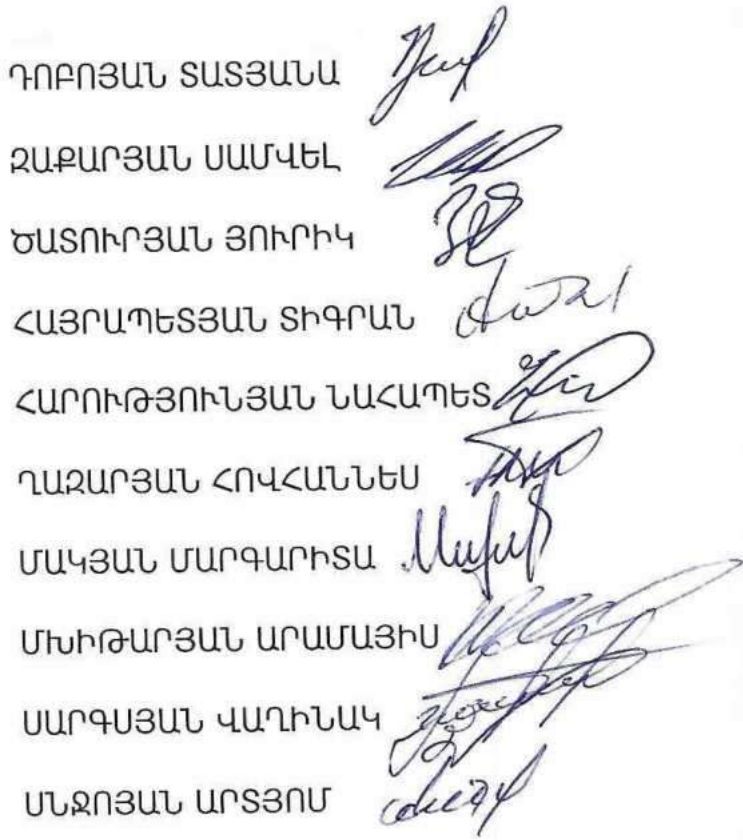 ԴՈԲՈՅԱՆ ՏԱՏՅԱՆԱ
ԶԱՔԱՐՅԱՆ ՍԱՄՎԵԼ
ԾԱՏՈՒՐՅԱՆ ՅՈՒՐԻԿ
ՀԱՅՐԱՊԵՏՅԱՆ ՏԻԳՐԱՆ
ՀԱՐՈՒԹՅՈՒՆՅԱՆ ՆԱՀԱՊԵՏ
ՂԱԶԱՐՅԱՆ ՀՈՎՀԱՆՆԵՍ
ՄԱԿՅԱՆ ՄԱՐԳԱՐԻՏԱ
ՄԽԻԹԱՐՅԱՆ ԱՐԱՄԱՅԻՍ
ՍԱՐԳՍՅԱՆ ՎԱՂԻՆԱԿ
ՍՆՋՈՅԱՆ ԱՐՏՅՈՄ